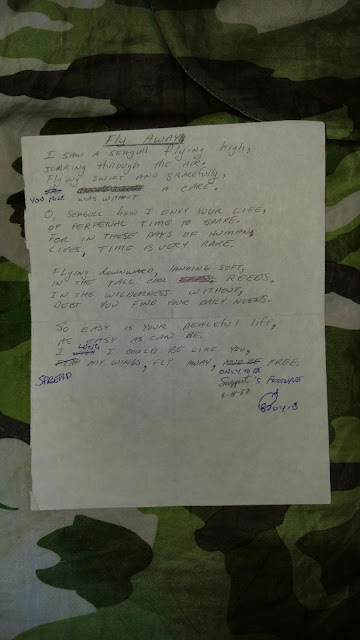 Fly Away
I saw a seagull flying high,
soaring through the air.
Flying swift and gracefully,
you are was without a care.
O, seagull how I envy your life,
of perpenal time to spare.
For in these days of human
lives, time is very rare.
Flying downward, landing soft,
in the tall cool reeds.
In the wilderness without,
debt you find your daily needs.
So easy is your peaceful life,
as easy as can be.
I wish I could be like you,
spread my wings, fly away, only to be free.
8-18-87